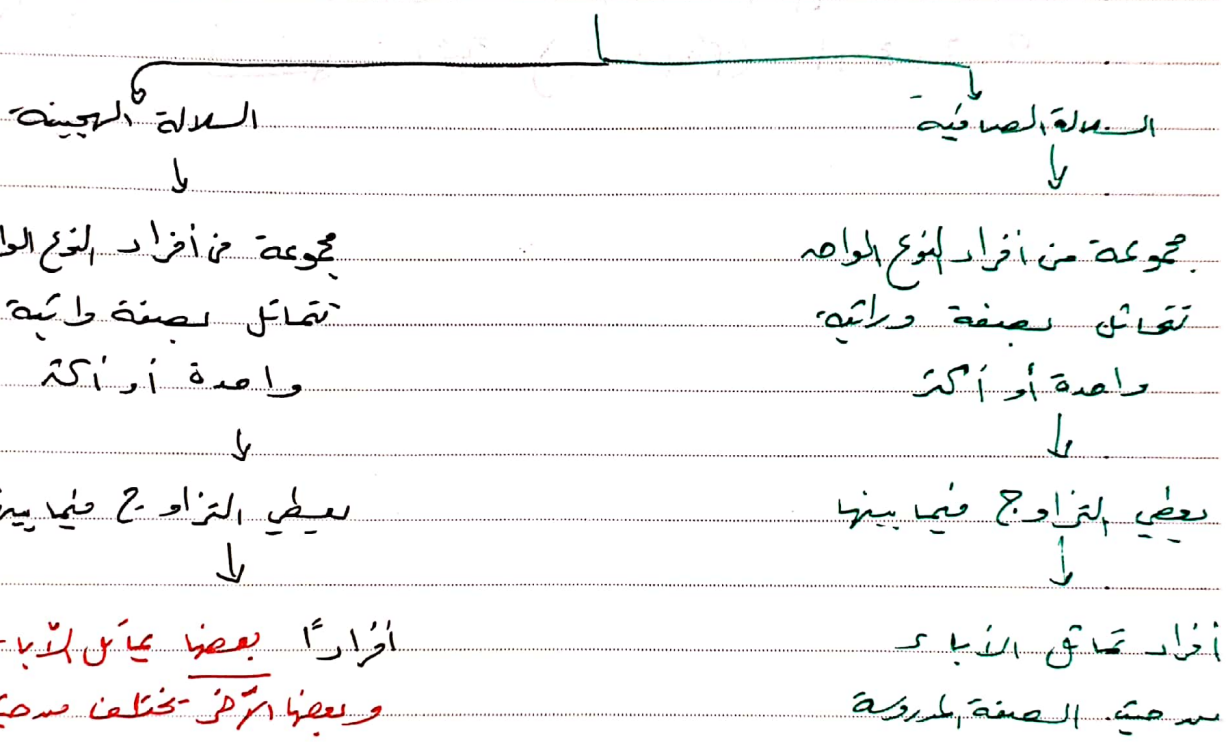 السلالة الصافية
السلالة الهجينة
مجموعة من أفراد النوع الواحد
تتماثل بصفة وراثية
واحدة أو أكثر
يعطي التزاوج فيما بينها
أفراد تماثل الأباء
من حيث الصفة المدروسة
مجموعة من أفراد النوع الوا
تتماثل بصفة واثية
واحدة أو أكثر
يعطي التزاوج فيما بين
أفرادًا بعضها يماثل الأبا
وبعضها الآخر يختلف من حيث